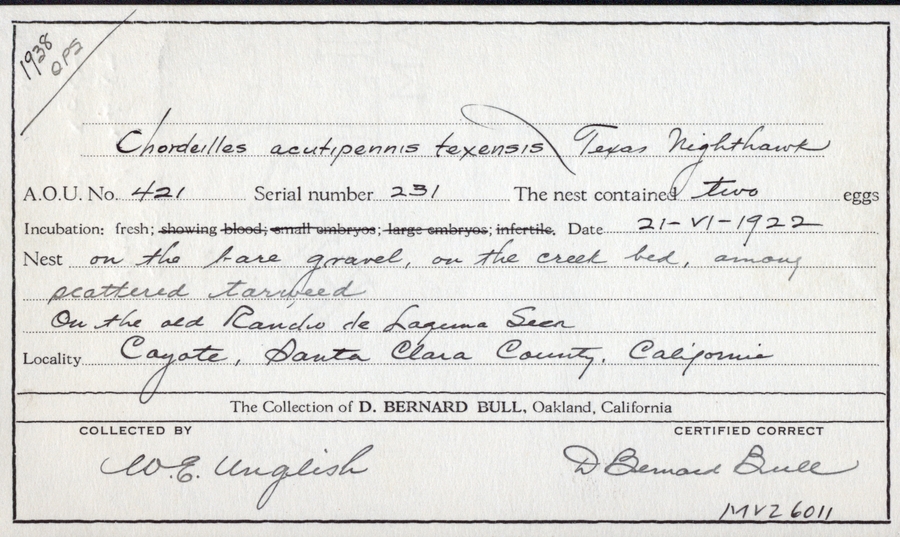 1938
Chordeilles acutipennis texensis Texas Nighthawk
A.O.U. No. 421 Serial number 231 The nest contained two eggs
Incubation: fresh; showing blood; small embryos; large embryos; infertile. Date 21-VI-1922
Nest on the bare gravel, on the creek bed, among
scattered tarweed
On the old Rancho de Laguna Seca
Locality Coyote, Santa Clara County, California
The Collection of D. BERNARD BULL, Oakland, California
COLLECTED BY CERTIFIED CORRECT
W.E. Unglish D Bernard Bull
MVZ 6011